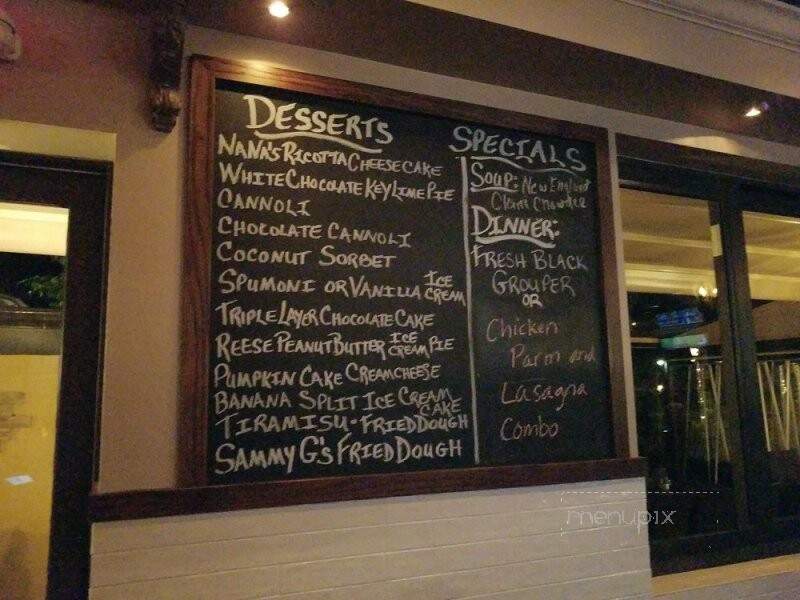 DESSERTS
NANA'S RICOTTA CHEESECAKE
WHITE CHOCOLATE KEY LIME PIE
CANNOLI
CHOCOLATE CANNOLI
COCONUT SORBET
SPUMONI OR VANILLA ICE CREAM
TRIPLE LAYER CHOCOLATE CAKE
REESE PEANUT BUTTER ICE CREAM PIE
PUMPKIN CAKE CREAMCHEESE
BANANA SPLIT ICE CREAM CAKE
TIRAMISU - FRIED DOUGH
SAMMY G'S FRIED DOUGH
SPECIALS
SOUP: New England
Clam Chowder
DINNER:
FRESH BLACK
GROUPER
OR
Chicken
Parm and
Lasagna
Combo
menupix